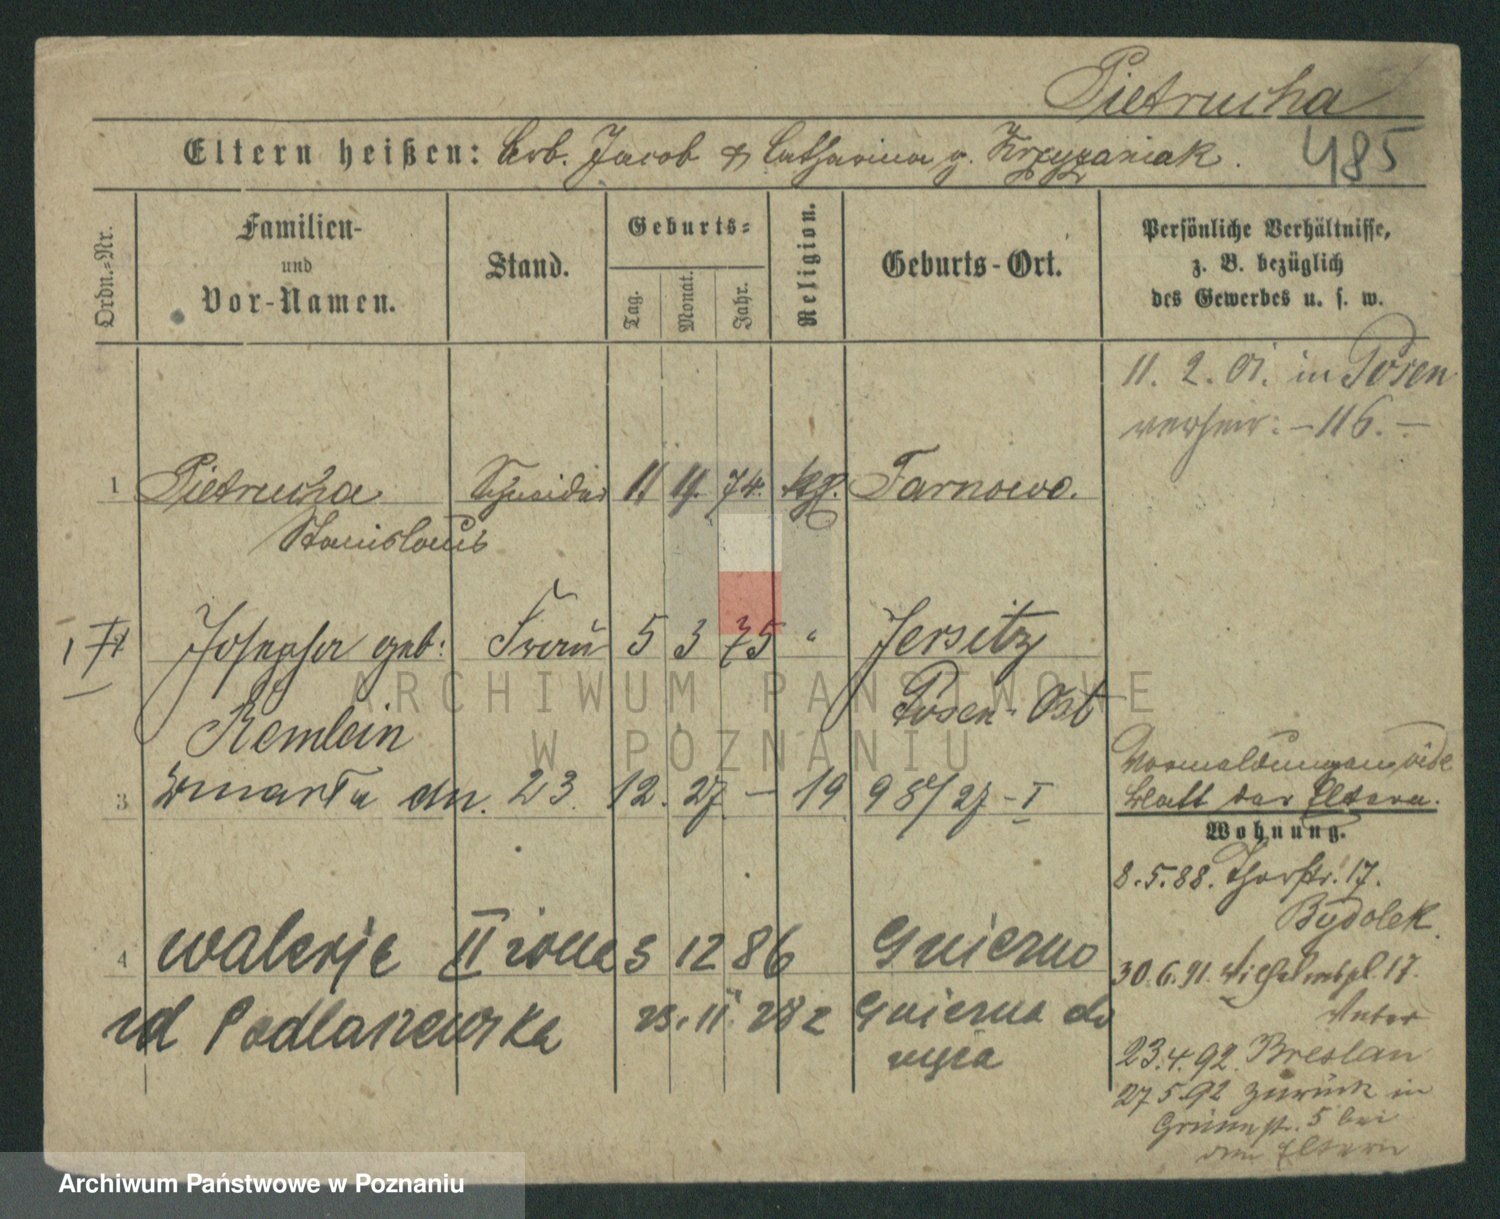 Pietrucha
Eltern heißen: Arb. Jacob & Catharina g. Krzyzaniak.
485
Ordn.-Nr.
Familien-
und
Vor-Namen.
Stand.
Geburts-
Tag.
Monat.
Jahr.
Religion.
Geburts-Ort.
Persönliche Verhältnisse,
z. B. bezüglich
des Gewerbes u. s. w.
11. 2. 01. in Posen
verheir: -116.-
1 Pietrucha Schneider 11 11. 74. kgl. Tarnowo.
Stanislaus
Josepha geb: Frau 5 3 75 " Jersitz
Remlein Posen-Ost
3 zmarła dn. 23. 12. 27 - 19 987/27-I
Vormeldungen vide
Blatt der Eltern.
Wohnung.
8.5.88. Thorstr. 17.
Bydolek.
4 Walerje II żona 3 12 86 Gniezno
30.6.91. Wilhelmspl. 17.
zd Podlaszewska 23. 11. 28 z Gniezna do
23.4.92. Breslau
27.5.92 zurück in
Grünstr. 5 bei
den Eltern
ARCHIWUM PAŃSTWOWE
W POZNANIU
Archiwum Państwowe w Poznaniu